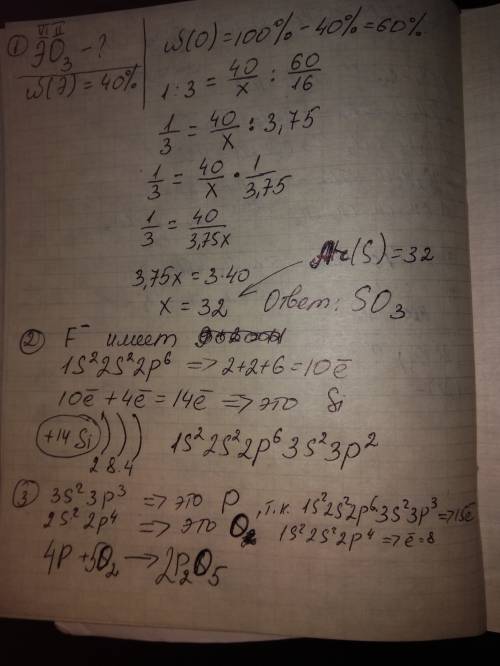 ① ЭO₃ - ? (VI II)
ω(Э) = 40%
ω(O) = 100% - 40% = 60%
1 : 3 = 40/x : 60/16
1/3 = 40/x : 3,75
1/3 = 40/x · 1/3,75
1/3 = 40/3,75x
3,75x = 3·40
x = 32
Ar(S) = 32
Ответ: SO₃
② F⁻ имеет
1s²2s²2p⁶ => 2+2+6 = 10ē
10ē + 4ē = 14ē => это Si
+14 Si ) ) )
2 8 4
1s²2s²2p⁶3s²3p²
③ 3s²3p³ => это P, т.к. 1s²2s²2p⁶3s³3p³ => 15ē
2s²2p⁴ => это O 1s²2s²2p⁴ => ē = 8
4P + 5O₂ → 2P₂O₅